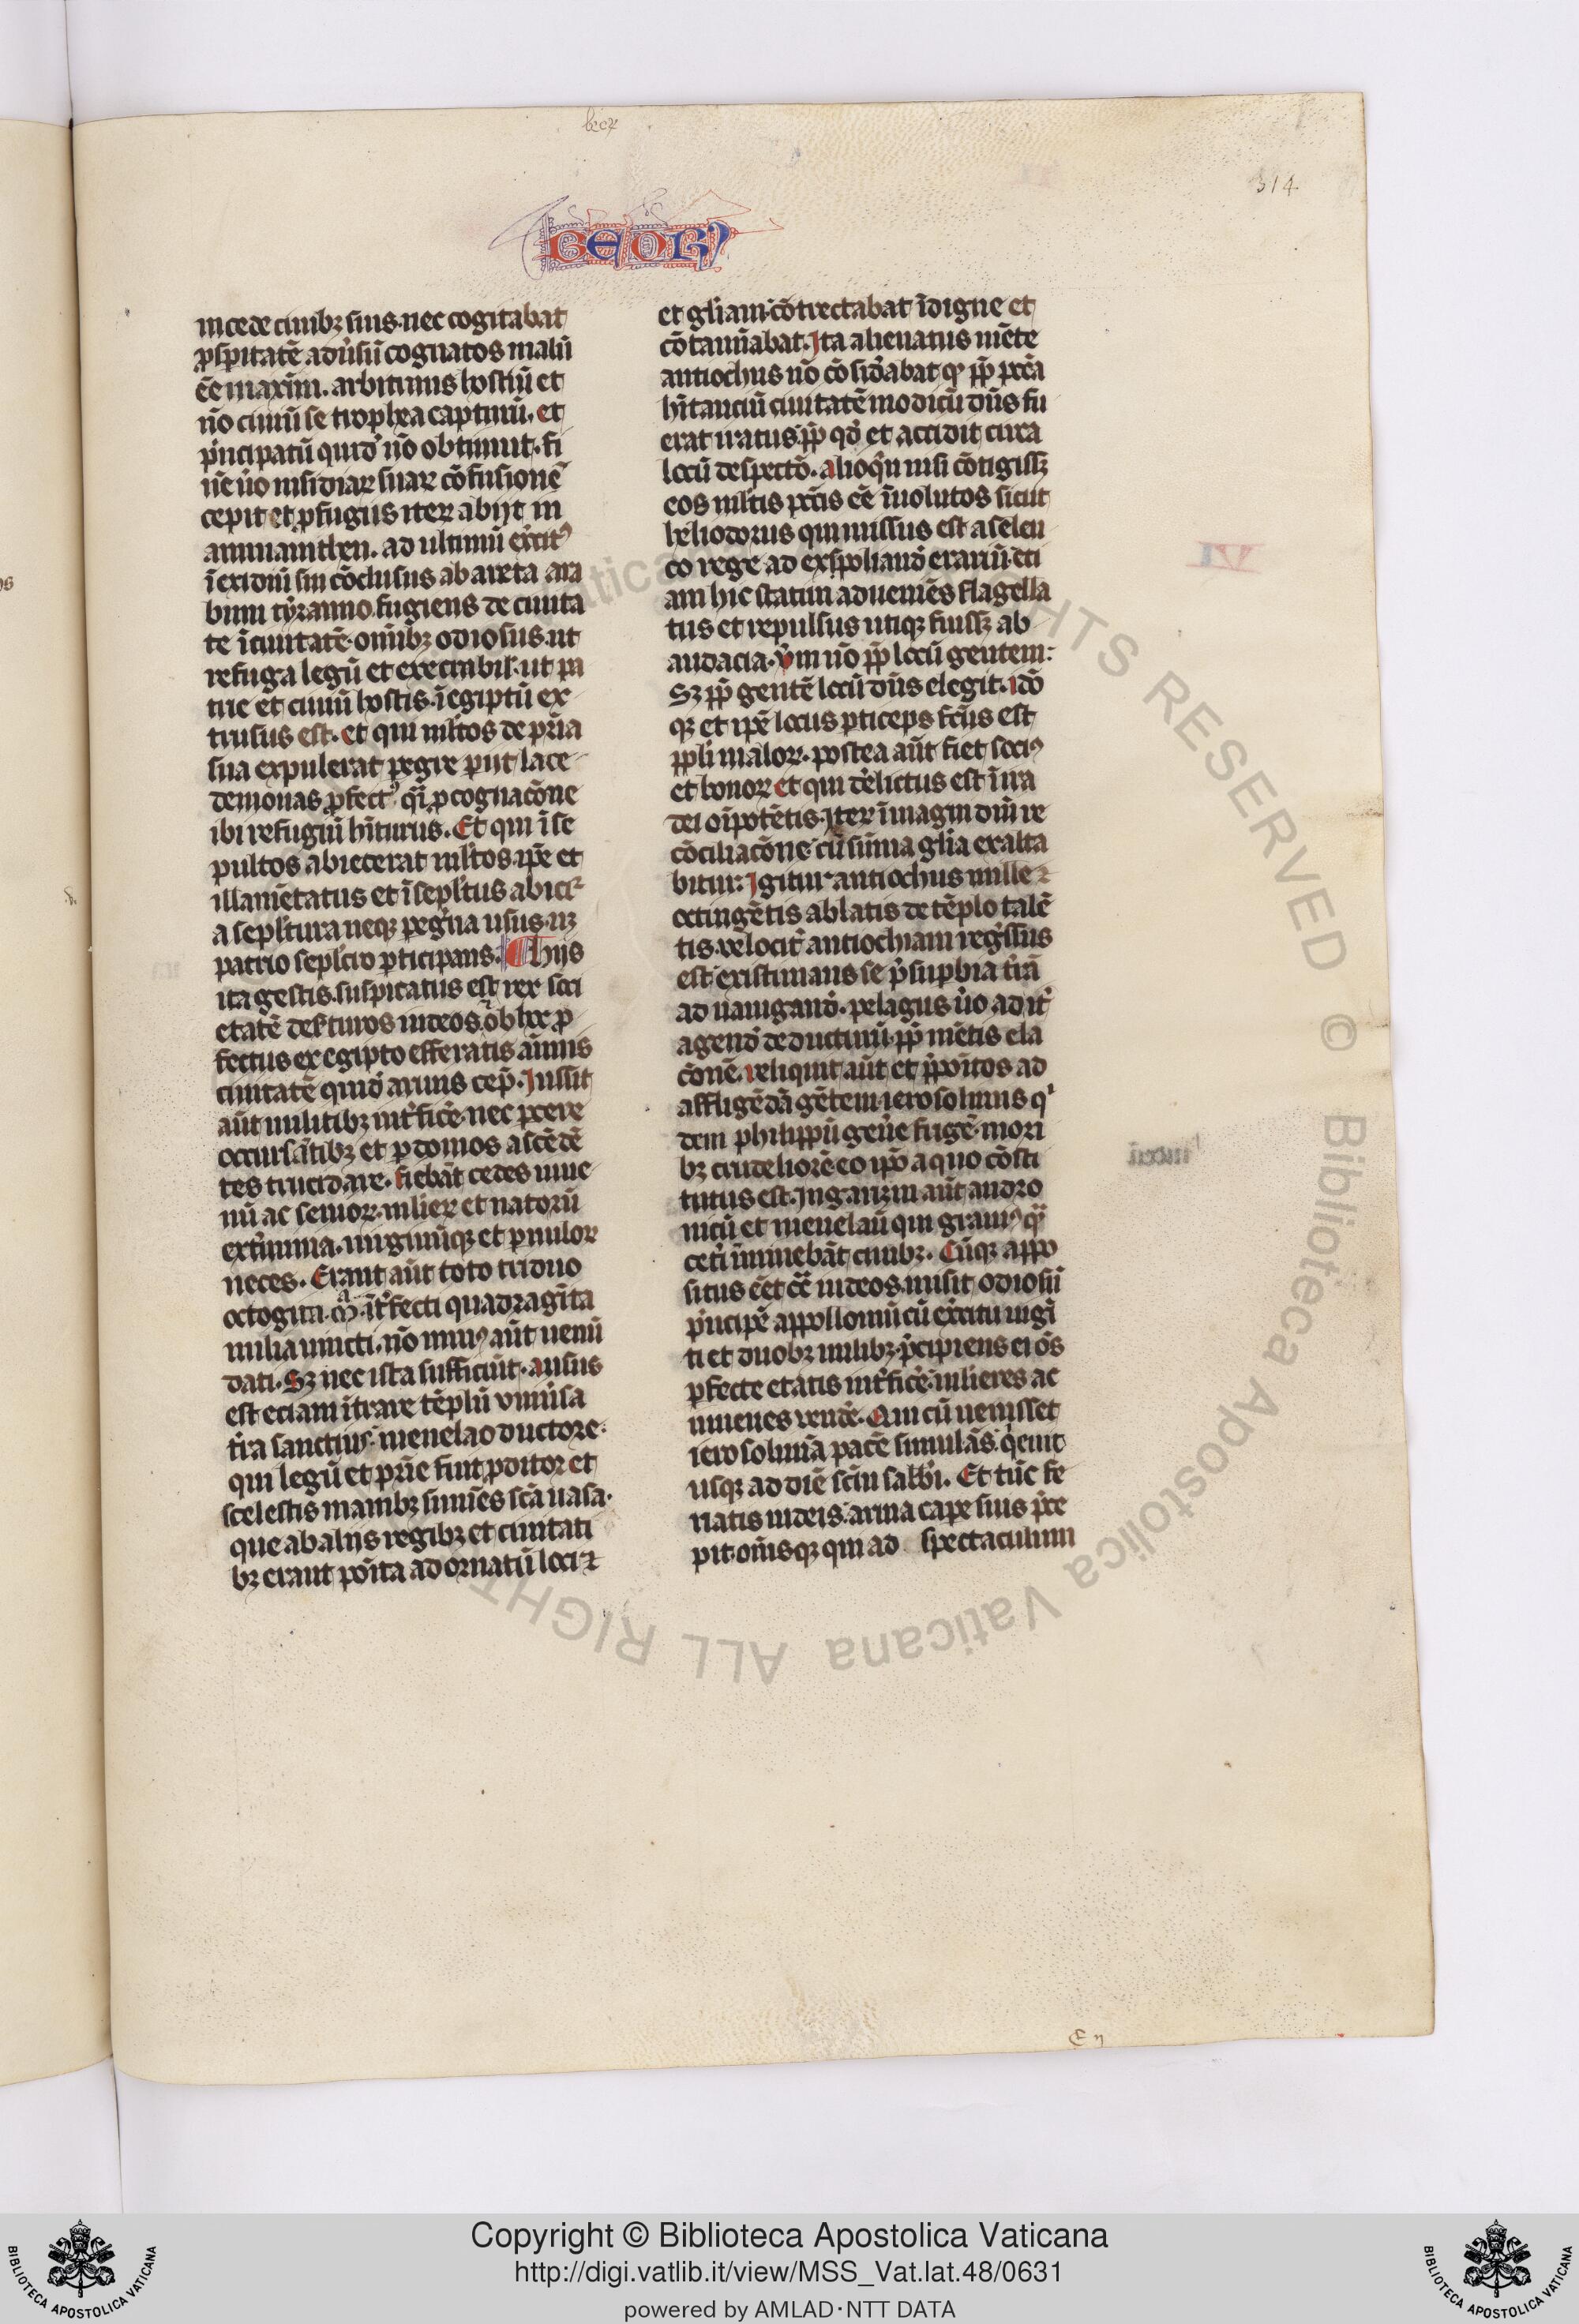 becor
314
BEORꝝ
in cede ciuibꝫ suis. nec cogitabat
ꝓspitatē aduˀsū cognatos malū
ēē maximͣ. arbitrans hostiū et
nō ciuiū se trophea capturū. et
pˀncipatū quidˀ nō obtinuit. fi
nē uˀo insidiaꝝ suaꝝ cōfusionē
cepit et ꝓfugus iter abijt in
ammanithen. ad ultimū exˀcitˀ
ī exidiū sui cōclusus ab areta ara
bum tyranno. fugiens de ciuita
te ī ciuitatē. omībꝫ odiosus. ut
refuga legū et execrabilˀ. ut pa
trie et ciuiū hostis. ī egiptū ex
trusus est. et qui mltos de prˀia
sua expulerat ꝑegre ꝑijt lace
demonas ꝓfectˀ qͣi ꝓ cognacōne
ibi refugiū hīturus. Et qui īse
pultos abiecerat mltos. ipē et
illamētatus et īsepltus abiciˀ
a sepltura neqꝫ ꝑegˀna usus. nꝫ
patrio seplcro ꝑticipans. ¶ Hijs
ita gestis. suspicatus est rex soci
etatē defturos iudeos. ⁊ ob hoc ꝓ
fectus ex egipto efferatis aīmis
ciuitatē quidˀ armis cepˀ. Jussit
aūt militibꝫ intˀficˀe. nec ꝑcere
occursātibꝫ et ꝑ domos ascēdē
tes trucidare. fiebāt cedes iuue
nū ac senioꝝ. mlieꝝ et natorū
extˀminia. uirginūqꝫ et ꝑuuloꝝ
neces. Erant aūt toto triduo
octoginͣ. mͣ. ītˀfecti quadragīta
milia uincti. nō minˀ aūt uenū
dati. Sꝫ nec ista sufficiūt. ausus
est eciam ītrare tēplū vniuˀsa
tˀra sanctius. menelao ductore.
qui legū et prˀie fuit ꝓditor et
scelestis manibꝫ sumēs scā uasa.
que ab alijs regibꝫ et ciuitati
bꝫ erant poˀita ad ornatū loci ⁊
et glˀiam. cōtrectabat īdigne et
cōtamīabat. Jta alienatus mēte
antiochus nō cōsidˀabat qꝙ ꝓpˀ pctˀa
hītanciū ciuitatē modicū dn̄s fu
erat iratus. ꝓpˀ qdˀ et accidit circa
locū despectōˀ. alioqˀn nisi cōtigissꝫ
eos mltis pctˀis ēē īuolutos sicut
heliodorus qui missus est a seleu
co rege ad exspoliandˀ erariū. eti
am hic statim adueniēs flagella
tus et repulsus utiqꝫ fuissꝫ ab
audacia. vˀm nō ꝓpˀ locū gentem:
Sꝫ ꝓpˀ gentē locū dn̄s elegit. idō
qꝫ et ipē locus ꝑticeps fcūs est
ꝓpli maloꝝ. postea aūt fiet sociˀ
et bonoꝝ et qui dˀelictus est ī ira
dei oīpotētis. Jter ī magni dnī re
cōciliacōne cū sūma glˀia exalta
bitur. Jgitur antiochus mille ⁊
octingētis ablatis de tēplo talē
tis. velocitˀ antiochiam regˀssus
est existimans se pˀ supbia tˀrā
ad nauigandˀ. pelagus uˀo ad itˀ
agendˀ deducturū. ꝓpˀ mētis ela
cōnē. reliquit aūt et ꝓpoˀitos ad
affligēdā gētem. ierosolimis qͥ
dem philippū genˀe frigē. mori
bꝫ crudeliorē eo ipō a quo cōsti
tutus est. In garizin aūt andro
nicū et menelaū qui grauiˀ qͣ
cetˀi īminebāt ciuibꝫ. Cūqꝫ appo
situs eēt cōͣ iudeos. misit odiosū
pˀncipē appollonium cū exˀcitu uigī
ti et duobꝫ milibꝫ. pˀcipiens ei oēs
ꝑfecte etatis intˀficˀe. mlieres ac
iuuenes vendˀe. Qui cū uenisset
ierosolimā pacē simulās. qˀeuit
usqꝫ ad diē scīm sabbi. Et tūc fe
riatis iudeis. arma capˀe suis pˀce
pit. omīsqꝫ qui ad spectaculum
E ij
Copyright © Biblioteca Apostolica Vaticana
http://digi.vatlib.it/view/MSS_Vat.lat.48/0631
powered by AMLAD·NTT DATA
BIBLIOTECA APOSTOLICA VATICANA
BIBLIOTECA APOSTOLICA VATICANA
Biblioteca Apostolica Vaticana ALL RIGHTS RESERVED ©